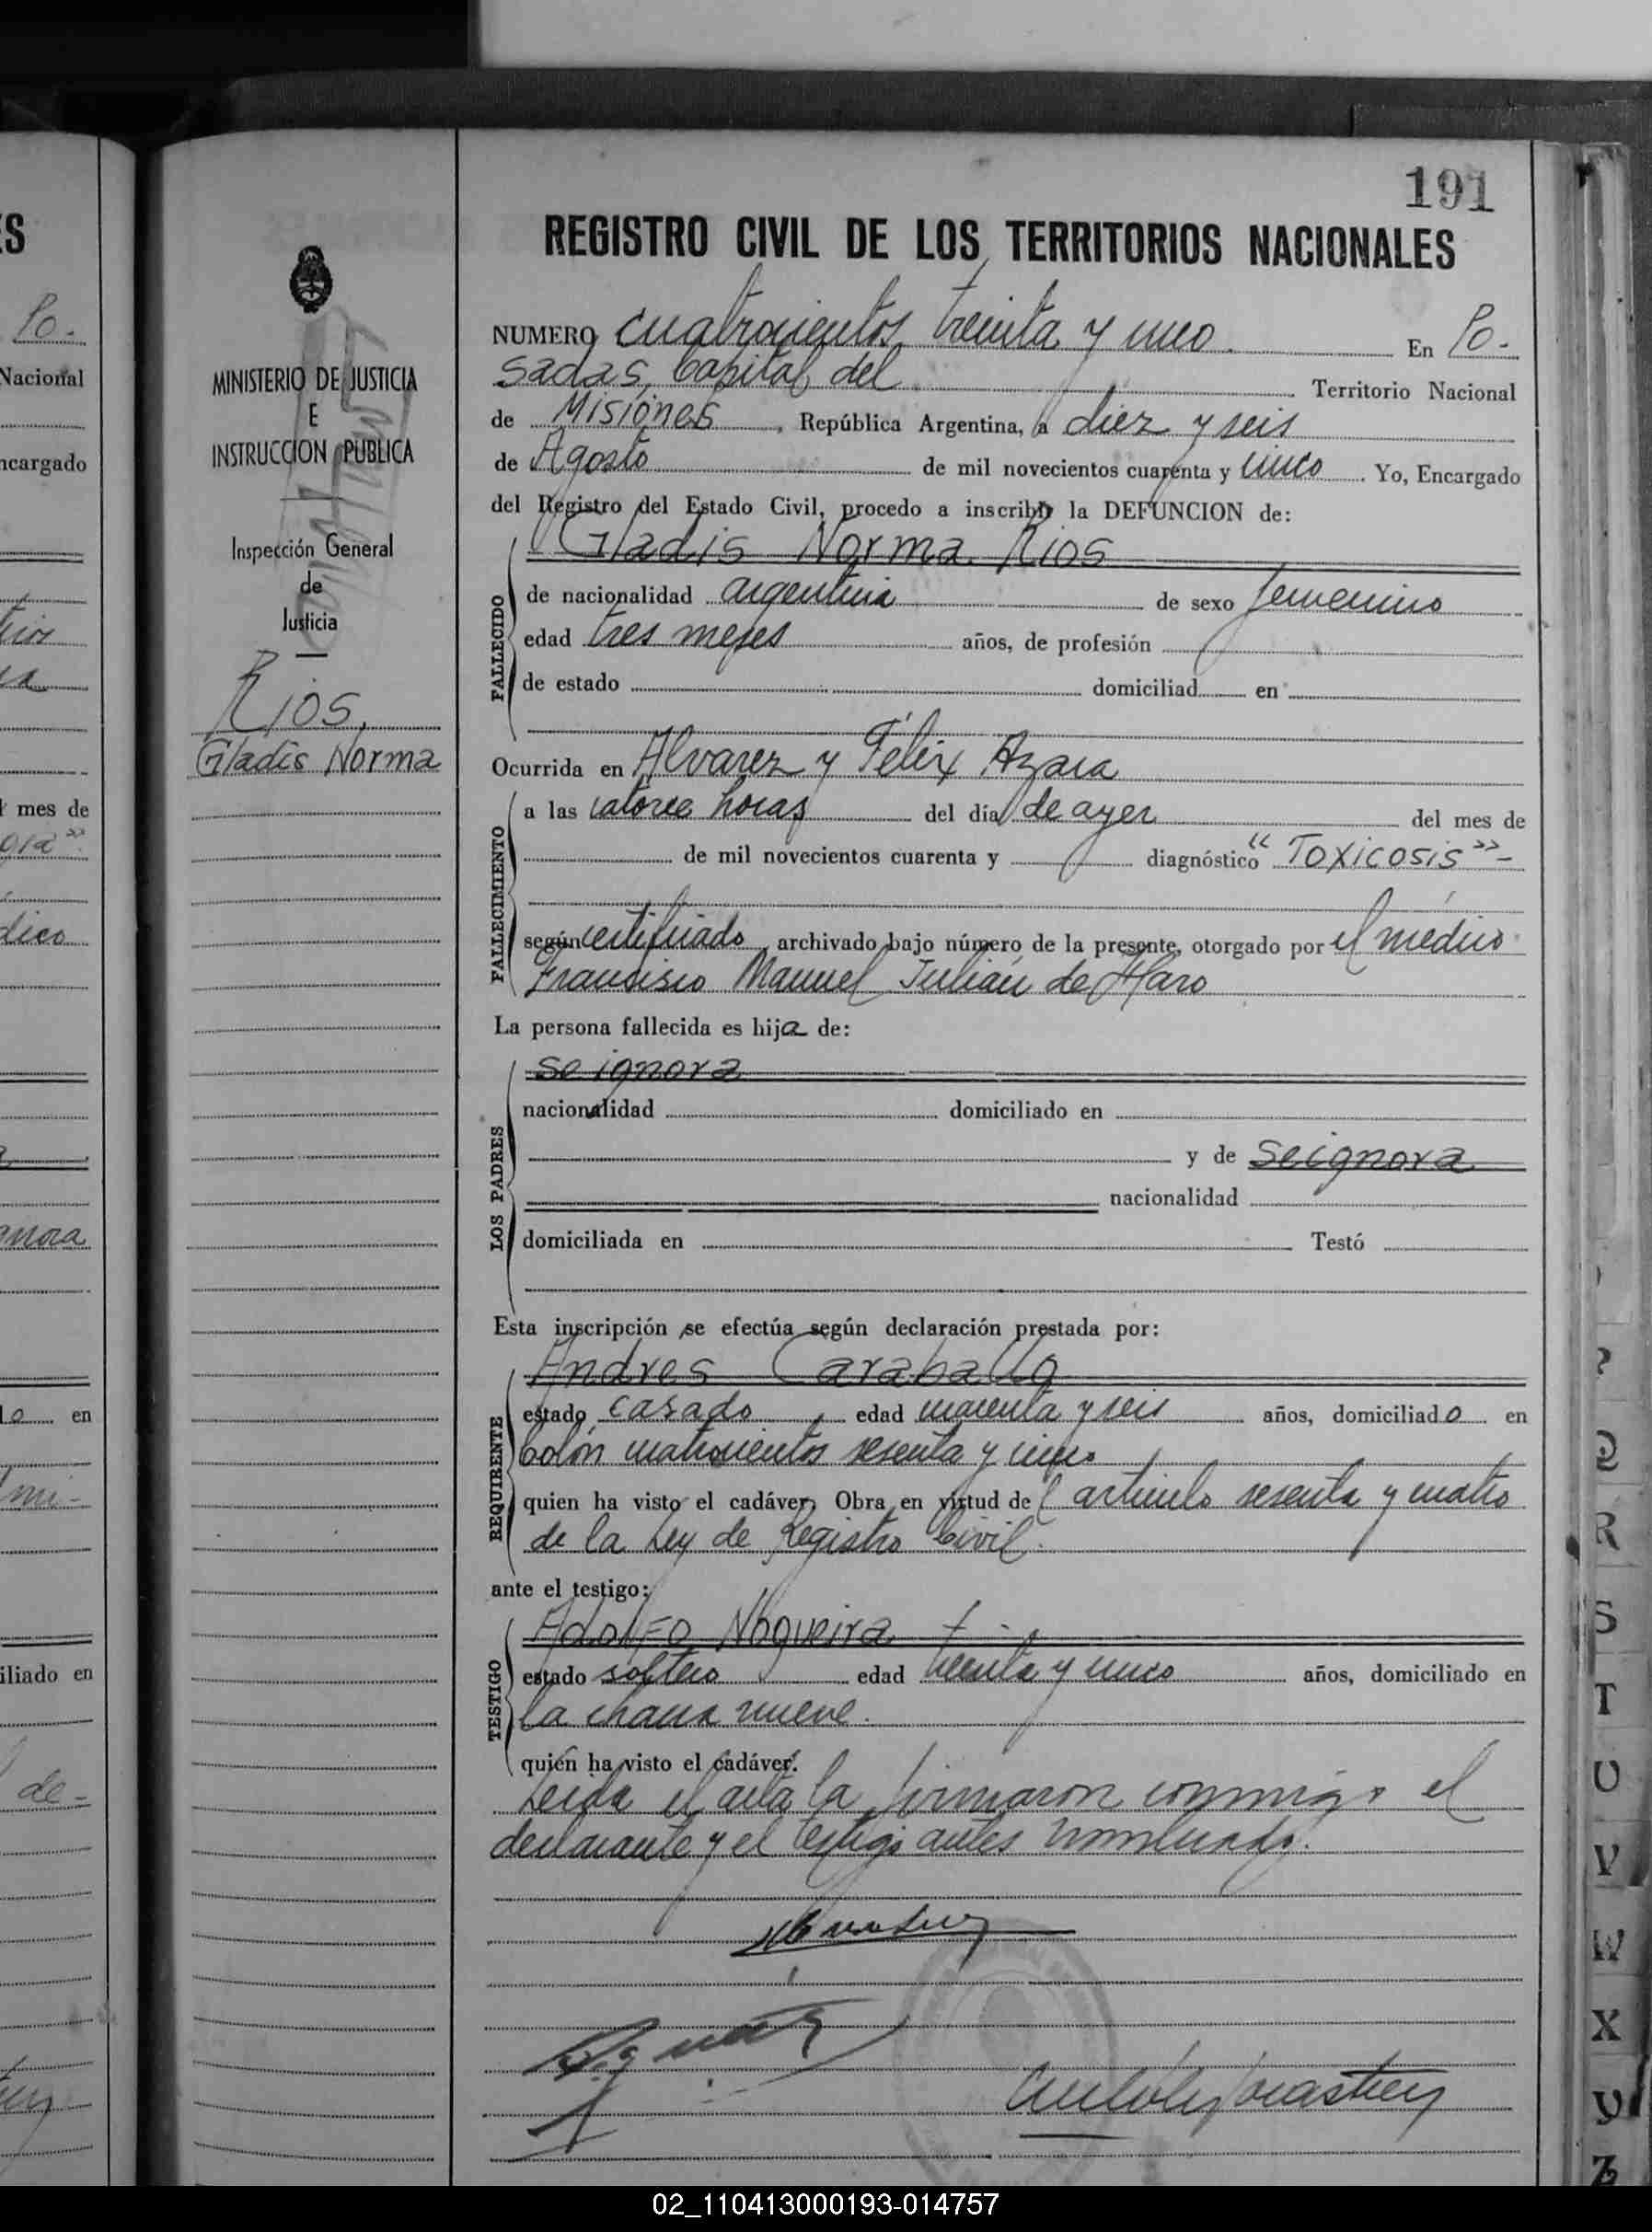 191
REGISTRO CIVIL DE LOS TERRITORIOS NACIONALES
NUMERO cuatrocientos treinta y uno. En Po-
sadas, Capital del Territorio Nacional
de Misiones, República Argentina, a diez y seis
de Agosto de mil novecientos cuarenta y uno. Yo, Encargado
del Registro del Estado Civil, procedo a inscribir la DEFUNCION de:
Gladis Norma Rios
FALLECIDO
de nacionalidad argentina de sexo femenino
edad tres meses años, de profesión
de estado domiciliad en
Ocurrida en Alvarez y Félix Azara
FALLECIMIENTO
a las catorce horas del día de ayer del mes de
de mil novecientos cuarenta y diagnóstico "Toxicosis"-
según certificado, archivado bajo número de la presente, otorgado por el médico
Francisco Manuel Julián de Haro
La persona fallecida es hija de:
LOS PADRES
se ignora
nacionalidad domiciliado en
y de se ignora
nacionalidad
domiciliada en Testó
Esta inscripción se efectúa según declaración prestada por:
REQUIRENTE
Andres Caraballo
estado casado, edad cuarenta y seis años, domiciliado en
Colón cuatrocientos sesenta y cinco
quien ha visto el cadáver, Obra en virtud del artículo sesenta y cuatro
de la Ley de Registro Civil.
ante el testigo:
TESTIGO
Adolfo Nogueira
estado soltero edad treinta y cinco años, domiciliado en
la chacra nueve.
quién ha visto el cadáver.
Leída el acta la firmaron conmigo el
declarante y el testigo antes nombrado.
MINISTERIO DE JUSTICIA
E
INSTRUCCION PUBLICA
Inspección General
de
Justicia
Rios,
Gladis Norma
ES
Po-
Nacional
ncargado
mes de
dico
o en
mi-
iliado en
de-
Q
R
S
T
U
V
W
X
Y
Z
02_110413000193-014757